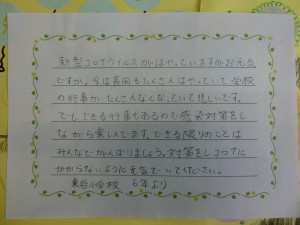 新型コロナウイルスがはやっていますがお元気
ですか。今は長岡もたくさんはやっていて学校
の行事がたくさんなくなっていて悲しいです。
でも、できる行事もあるので感染対策をし
ながら楽しんでます。できる限りのことは
みんなでがんばりましょう。対策をしコロナに
かからないように元気でいてください。
小学校 6年より